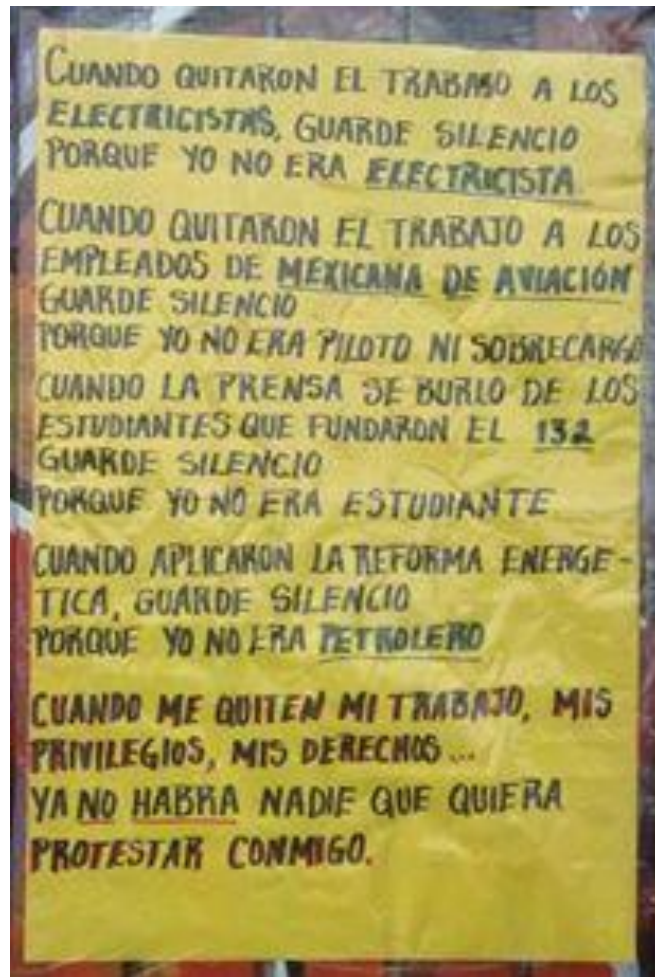 CUANDO QUITARON EL TRABAJO A LOS
ELECTRICISTAS, GUARDE SILENCIO
PORQUE YO NO ERA ELECTRICISTA.
CUANDO QUITARON EL TRABAJO A LOS
EMPLEADOS DE MEXICANA DE AVIACIÓN
GUARDE SILENCIO
PORQUE YO NO ERA PILOTO NI SOBRECARGO
CUANDO LA PRENSA SE BURLO DE LOS
ESTUDIANTES QUE FUNDARON EL 132
GUARDE SILENCIO
PORQUE YO NO ERA ESTUDIANTE
CUANDO APLICARON LA REFORMA ENERGE-
TICA, GUARDE SILENCIO
PORQUE YO NO ERA PETROLERO
CUANDO ME QUITEN MI TRABAJO, MIS
PRIVILEGIOS, MIS DERECHOS...
YA NO HABRA NADIE QUE QUIERA
PROTESTAR CONMIGO.